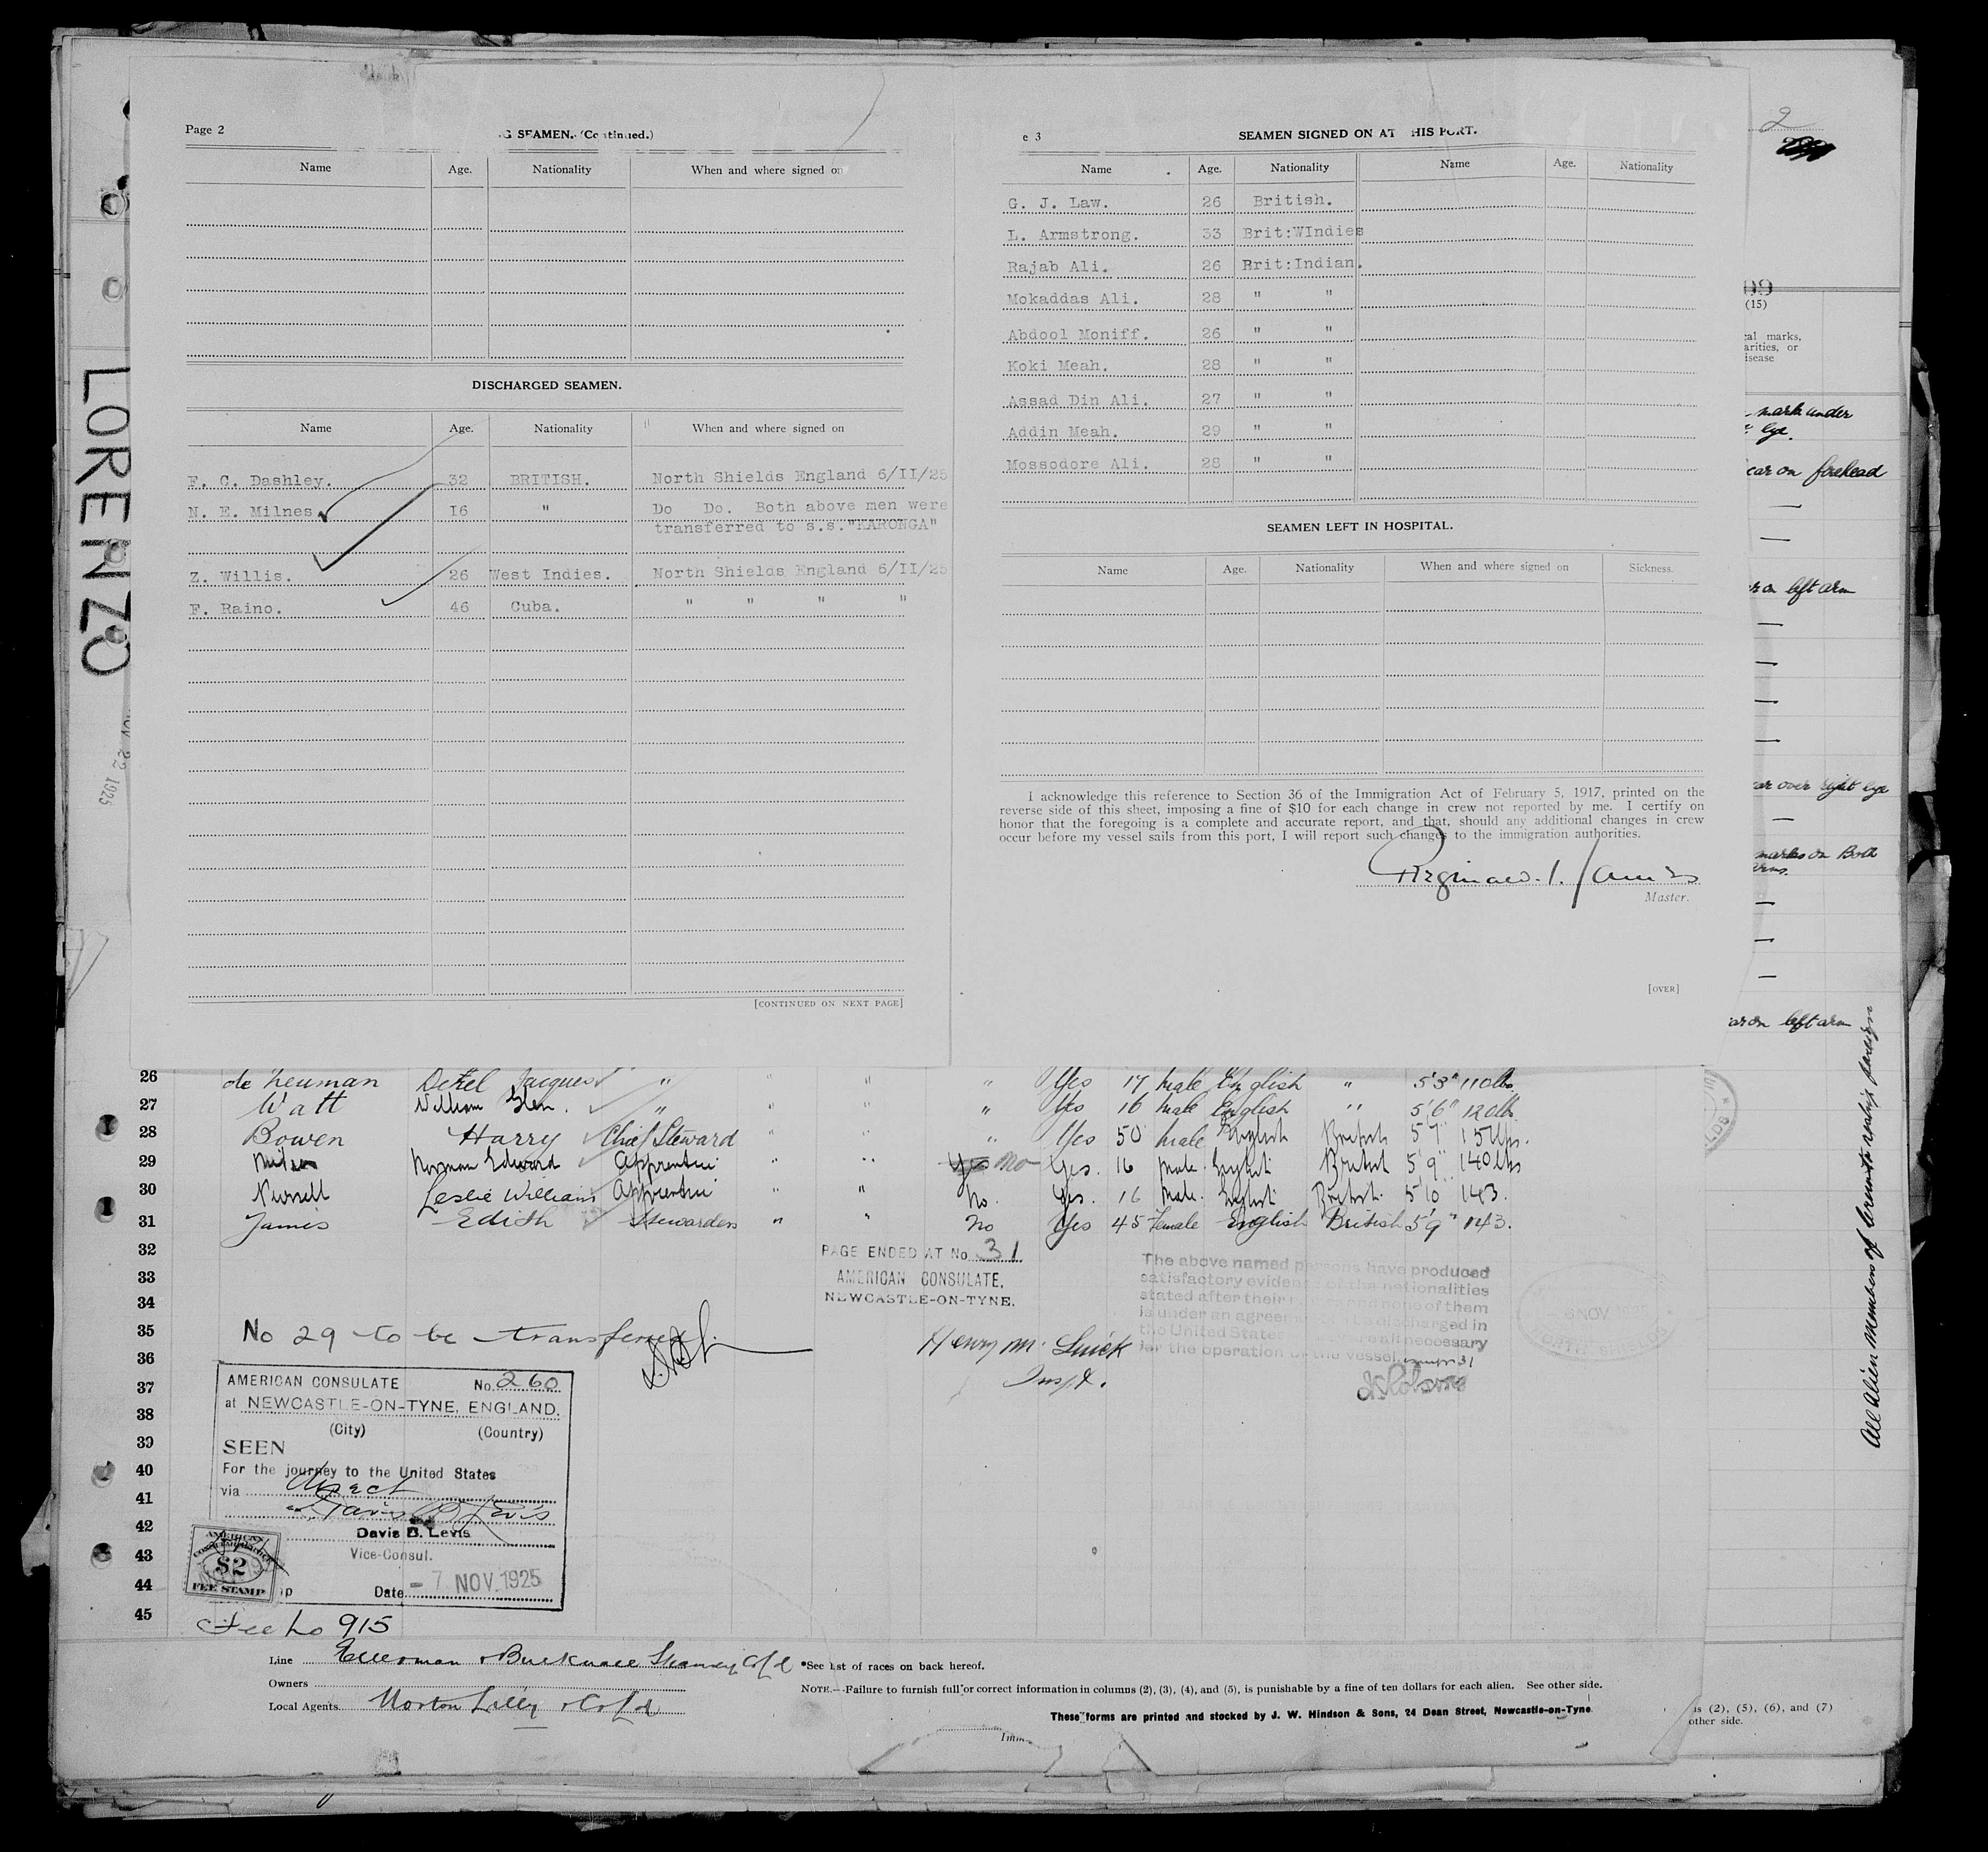 Page 2
G SEAMEN. (Continued.)
Name Age. Nationality When and where signed on
DISCHARGED SEAMEN.
Name Age. Nationality When and where signed on
F. C. Dashley. 32 BRITISH. North Shields England 6/II/25
N. E. Milnes. I6 " Do Do. Both above men were
transferred to s.s."KARONGA"
Z. Willis. 26 West Indies. North Shields England 6/II/25
F. Raino. 46 Cuba. " " " "
[CONTINUED ON NEXT PAGE]
e 3
SEAMEN SIGNED ON AT HIS PORT.
Name Age. Nationality Name Age. Nationality
G. J. Law. 26 British.
L. Armstrong. 33 Brit:WIndies
Rajab Ali. 26 Brit:Indian.
Mokaddas Ali. 28 " "
Abdool Moniff. 26 " "
Koki Meah. 28 " "
Assad Din Ali. 27 " "
Addin Meah. 29 " "
Mossodore Ali. 28 " "
SEAMEN LEFT IN HOSPITAL.
Name Age. Nationality When and where signed on Sickness.
I acknowledge this reference to Section 36 of the Immigration Act of February 5, 1917, printed on the
reverse side of this sheet, imposing a fine of $10 for each change in crew not reported by me. I certify on
honor that the foregoing is a complete and accurate report, and that, should any additional changes in crew
occur before my vessel sails from this port, I will report such changes to the immigration authorities.
Master.
[OVER]
2
09
(15)
al marks,
arities, or
isease
mark under
eye.
car on forehead
on left arm
car over right eye
marks on Both
arms.
ar on left arm
LORENZO
22 1925
26 de Neuman Jacques " " " " Yes 17 Male English " 5'3" 110lbs
27 Watt William Glen. " " " " Yes 16 Male English " 5'6" 120lb
28 Bowen Harry Chief Steward " " " Yes 50 Male English British 5'7"
29 Norman Edward Apprentice " " Yes No Yes. 16 male. English British 5'9" 140lbs
30 Leslie William Apprentice " " No. Yes. 16 male. English British. 5'10" 143.
31 James Edith Stewardess " " No Yes 45 Female English British 5'9" 143.
32
33
34
35
36
37
38
39
40
41
42
43
44
45
PAGE ENDED AT No. 31
AMERICAN CONSULATE,
NEWCASTLE-ON-TYNE.
The above named persons have produced
satisfactory evidence of the nationalities
stated after their and none of them
is under an agreem discharged in
the United States all necessary
for the operation of the vessel.
6 NOV
NORTH SHIELDS
No 29 to be transferred
Henry M.
Insp.
AMERICAN CONSULATE No. 260
at NEWCASTLE-ON-TYNE, ENGLAND.
(City) (Country)
SEEN
For the journey to the United States
via direct
Davis B. Levis
Davis B. Levis
Vice-Consul.
Date - 7 NOV. 1925
AMERICAN
$2
FEE STAMP
Fee No 915
Line Ellerman & Bucknall
Owners
Local Agents Norton Lilly & Co Ld
*See list of races on back hereof.
NOTE.—Failure to furnish full or correct information in columns (2), (3), (4), and (5), is punishable by a fine of ten dollars for each alien. See other side.
These forms are printed and stocked by J. W. Hindson & Sons, 24 Dean Street, Newcastle-on-Tyne
Imm
ns (2), (5), (6), and (7)
other side.
All Alien Members of foreign